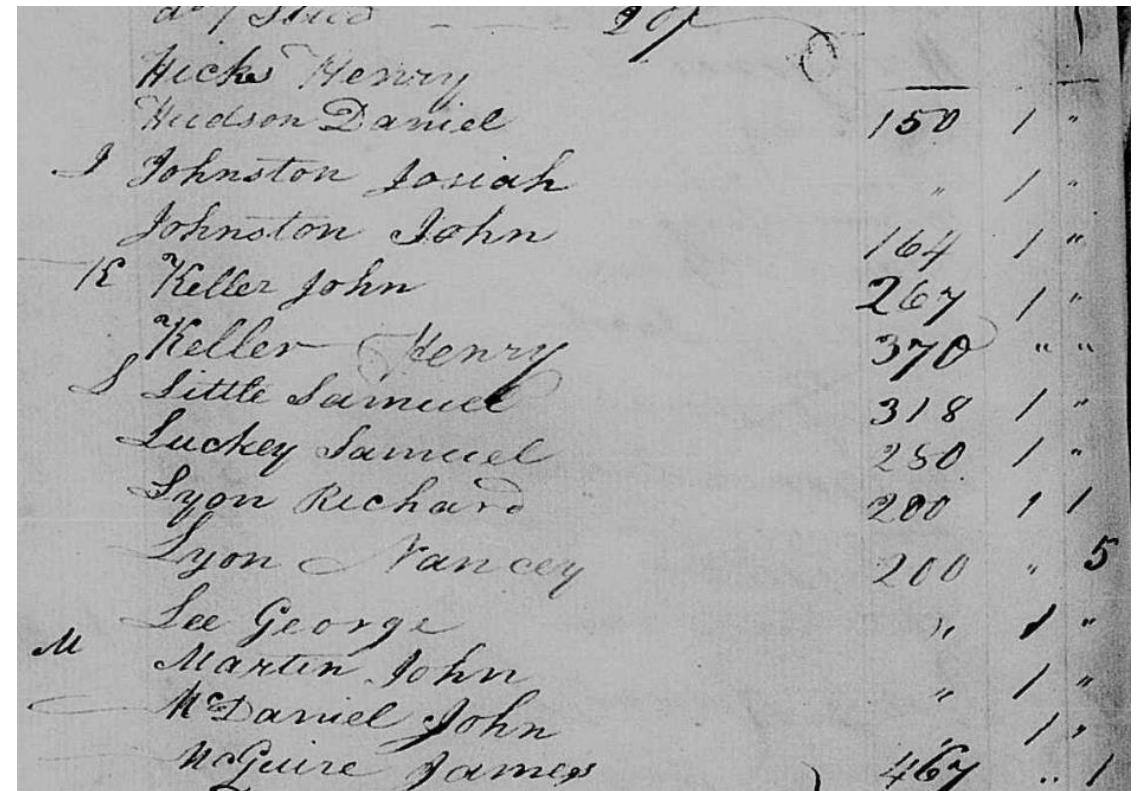 Hicks Henry
Hudson Daniel 150 1 "
J Johnston Josiah " 1 "
Johnston John 164 1 "
K Keller John 267 1 "
Keller Henry 370 " "
L Little Samuel 318 1 "
Luckey Samuel 250 1 "
Lyon Richard 200 1 1
Lyon Nancey 200 " 5
Lee George " 1 "
M Martin John " 1 "
McDaniel John " 1 "
McGuire James 467 " 1